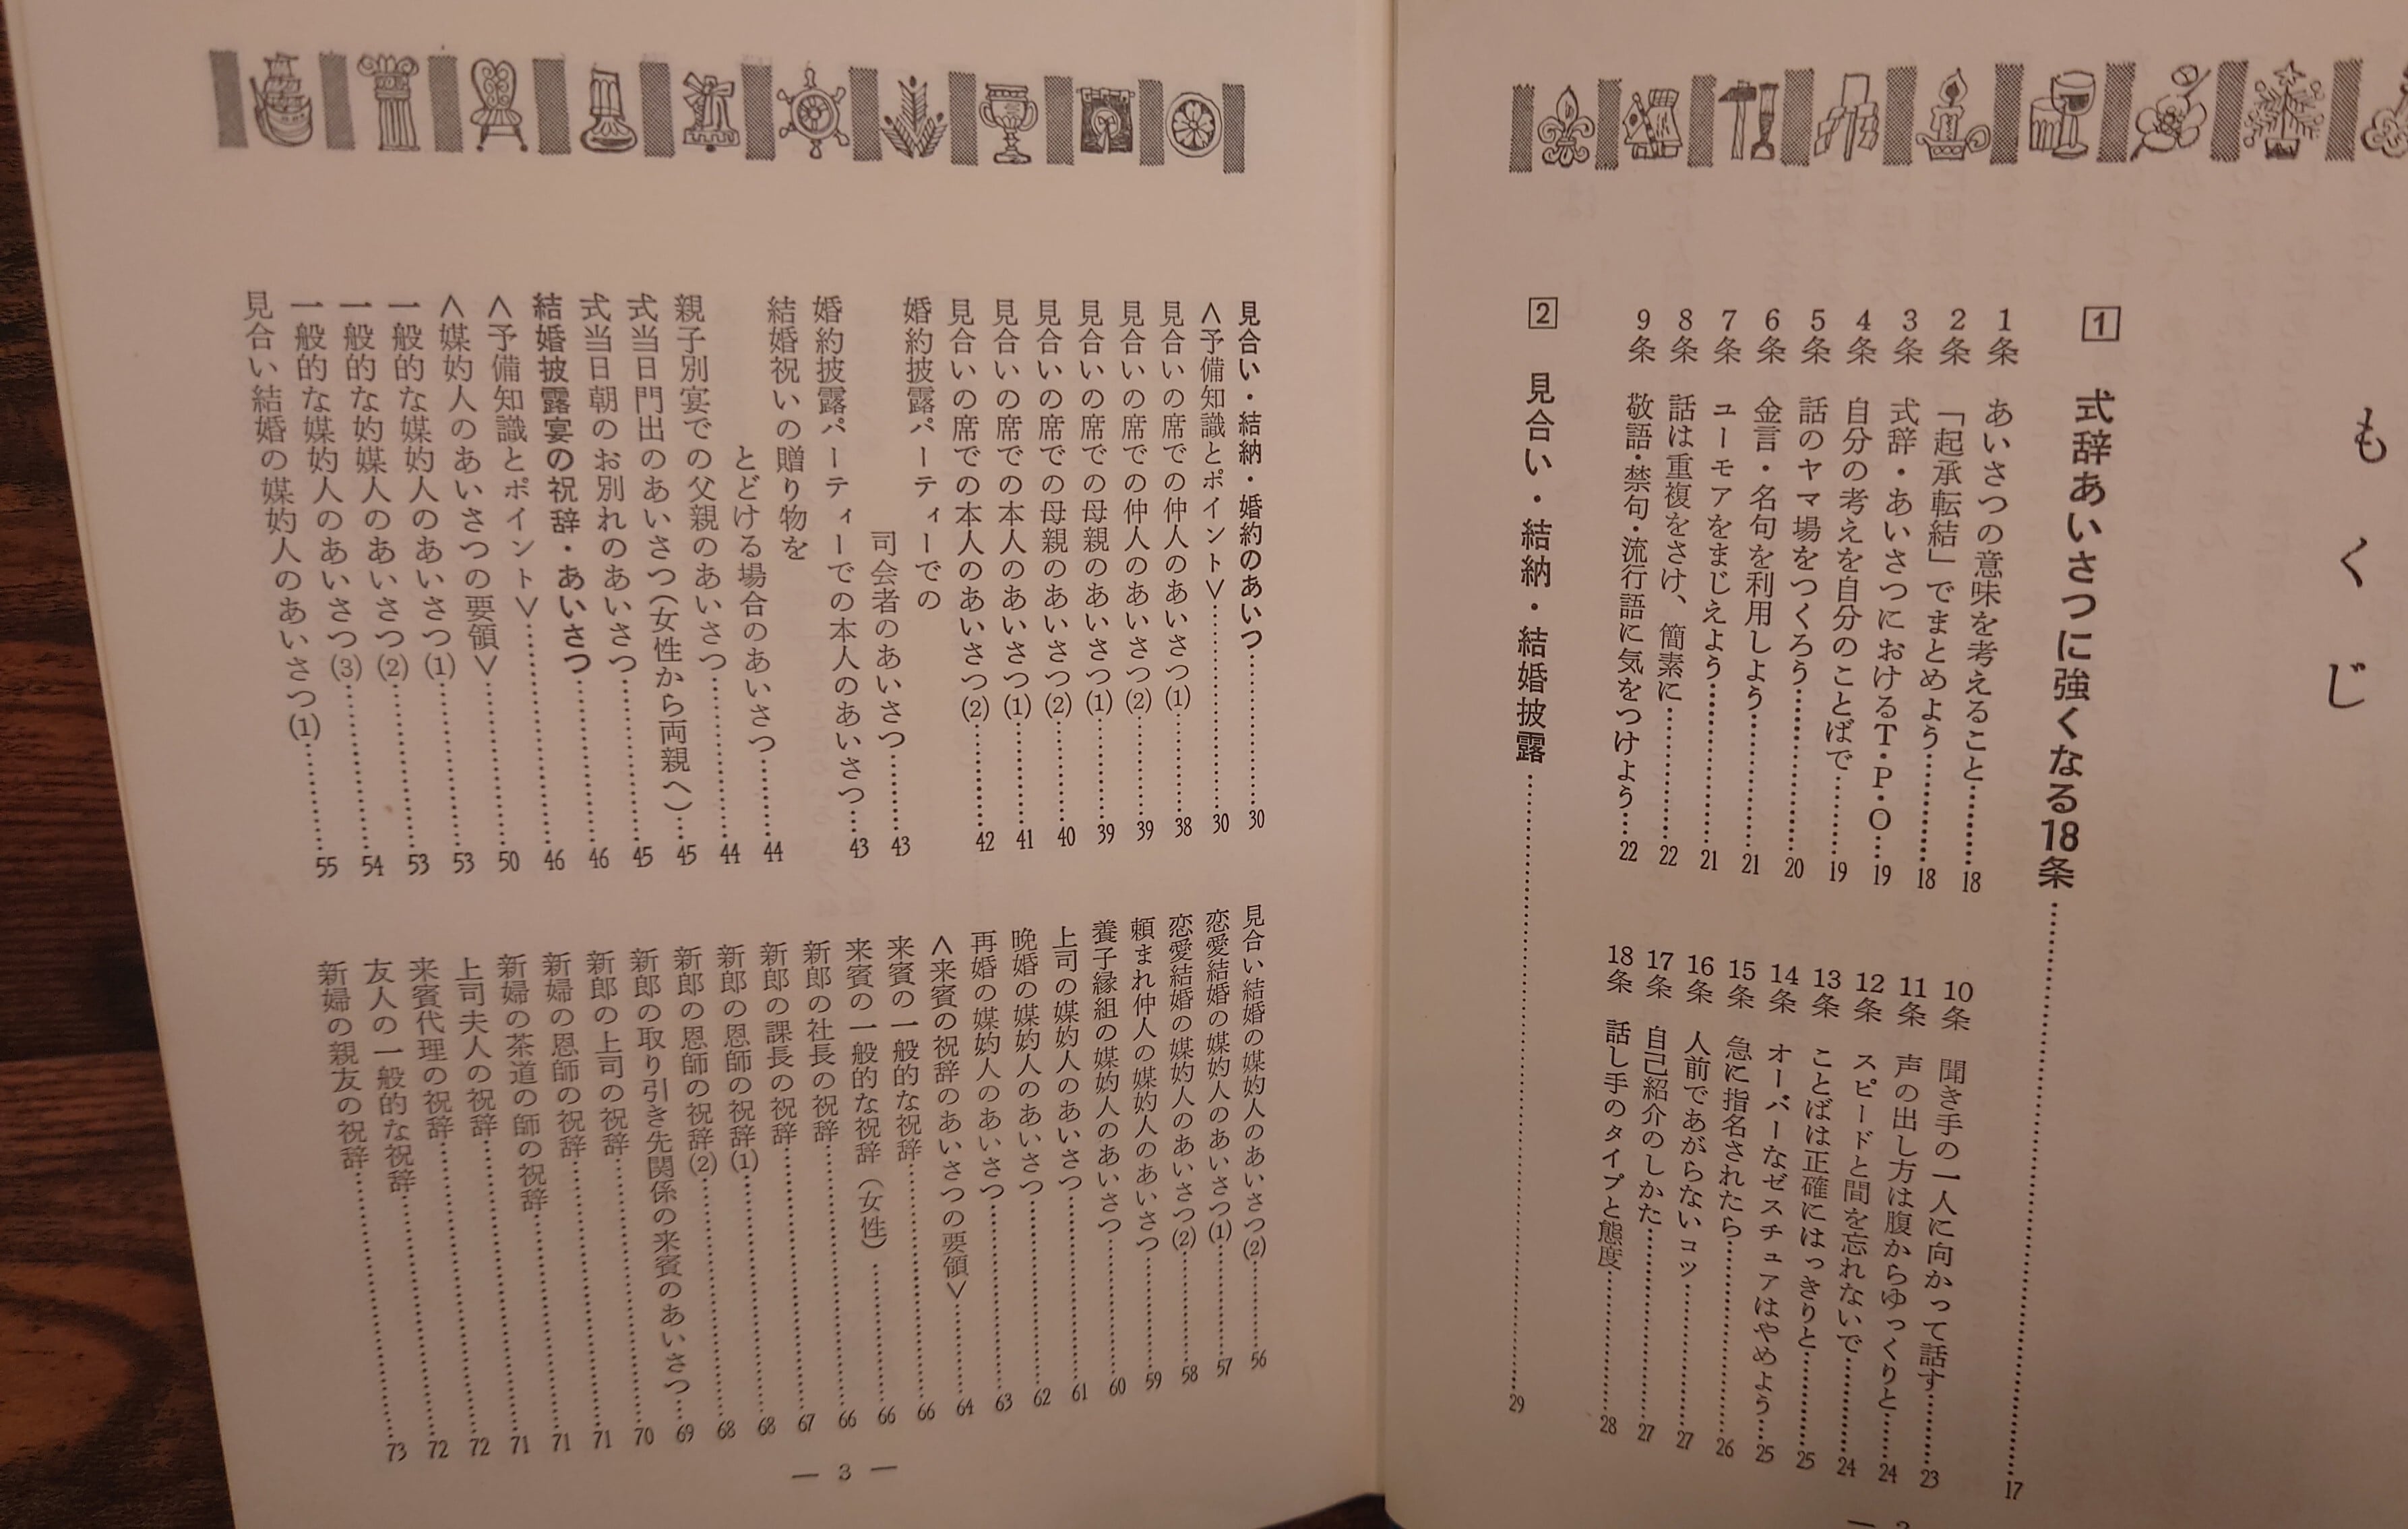 もくじ
1 式辞あいさつに強くなる18条……17
1条 あいさつの意味を考えること……18
2条 「起承転結」でまとめよう……18
3条 式辞・あいさつにおけるT・P・O……19
4条 自分の考えを自分のことばで……19
5条 話のヤマ場をつくろう……20
6条 金言・名句を利用しよう……21
7条 ユーモアをまじえよう……21
8条 話は重複をさけ、簡素に……22
9条 敬語・禁句・流行語に気をつけよう……22
10条 聞き手の一人に向かって話す……23
11条 声の出し方は腹からゆっくりと……24
12条 スピードと間を忘れないで……24
13条 ことばは正確にはっきりと……25
14条 オーバーなゼスチュアはやめよう……25
15条 急に指名されたら……26
16条 人前であがらないコツ……27
17条 自己紹介のしかた……27
18条 話し手のタイプと態度……28
2 見合い・結納・結婚披露……29
見合い・結納・婚約のあいつ……30
<予備知識とポイント>……30
見合いの席での仲人のあいさつ(1)……38
見合いの席での仲人のあいさつ(2)……39
見合いの席での母親のあいさつ(1)……39
見合いの席での母親のあいさつ(2)……40
見合いの席での本人のあいさつ(1)……41
見合いの席での本人のあいさつ(2)……42
婚約披露パーティーでの
司会者のあいさつ……43
婚約披露パーティーでの本人のあいさつ……43
結婚祝いの贈り物を
とどける場合のあいさつ……44
親子別宴での父親のあいさつ……44
式当日門出のあいさつ(女性から両親へ)……45
式当日朝のお別れのあいさつ……45
結婚披露宴の祝辞・あいさつ……46
<予備知識とポイント>……46
<媒妁人のあいさつの要領>……50
一般的な媒妁人のあいさつ(1)……53
一般的な妁媒人のあいさつ(2)……53
一般的な媒妁人のあいさつ(3)……54
見合い結婚の媒妁人のあいさつ(1)……55
見合い結婚の媒妁人のあいさつ(2)……56
恋愛結婚の媒妁人のあいさつ(1)……57
恋愛結婚の媒妁人のあいさつ(2)……58
頼まれ仲人の媒妁人のあいさつ……59
養子縁組の媒妁人のあいさつ……60
上司の媒妁人のあいさつ……61
晩婚の媒妁人のあいさつ……62
再婚の媒妁人のあいさつ……63
<来賓の祝辞のあいさつの要領>……64
来賓の一般的な祝辞……66
来賓の一般的な祝辞(女性)……66
新郎の社長の祝辞……66
新郎の課長の祝辞……67
新郎の恩師の祝辞(1)……68
新郎の恩師の祝辞(2)……68
新郎の取り引き先関係の来賓のあいさつ……69
新郎の上司の祝辞……70
新婦の恩師の祝辞……71
新婦の茶道の師の祝辞……71
上司夫人の祝辞……71
来賓代理の祝辞……72
友人の一般的な祝辞……72
新婦の親友の祝辞……73
— 3 —